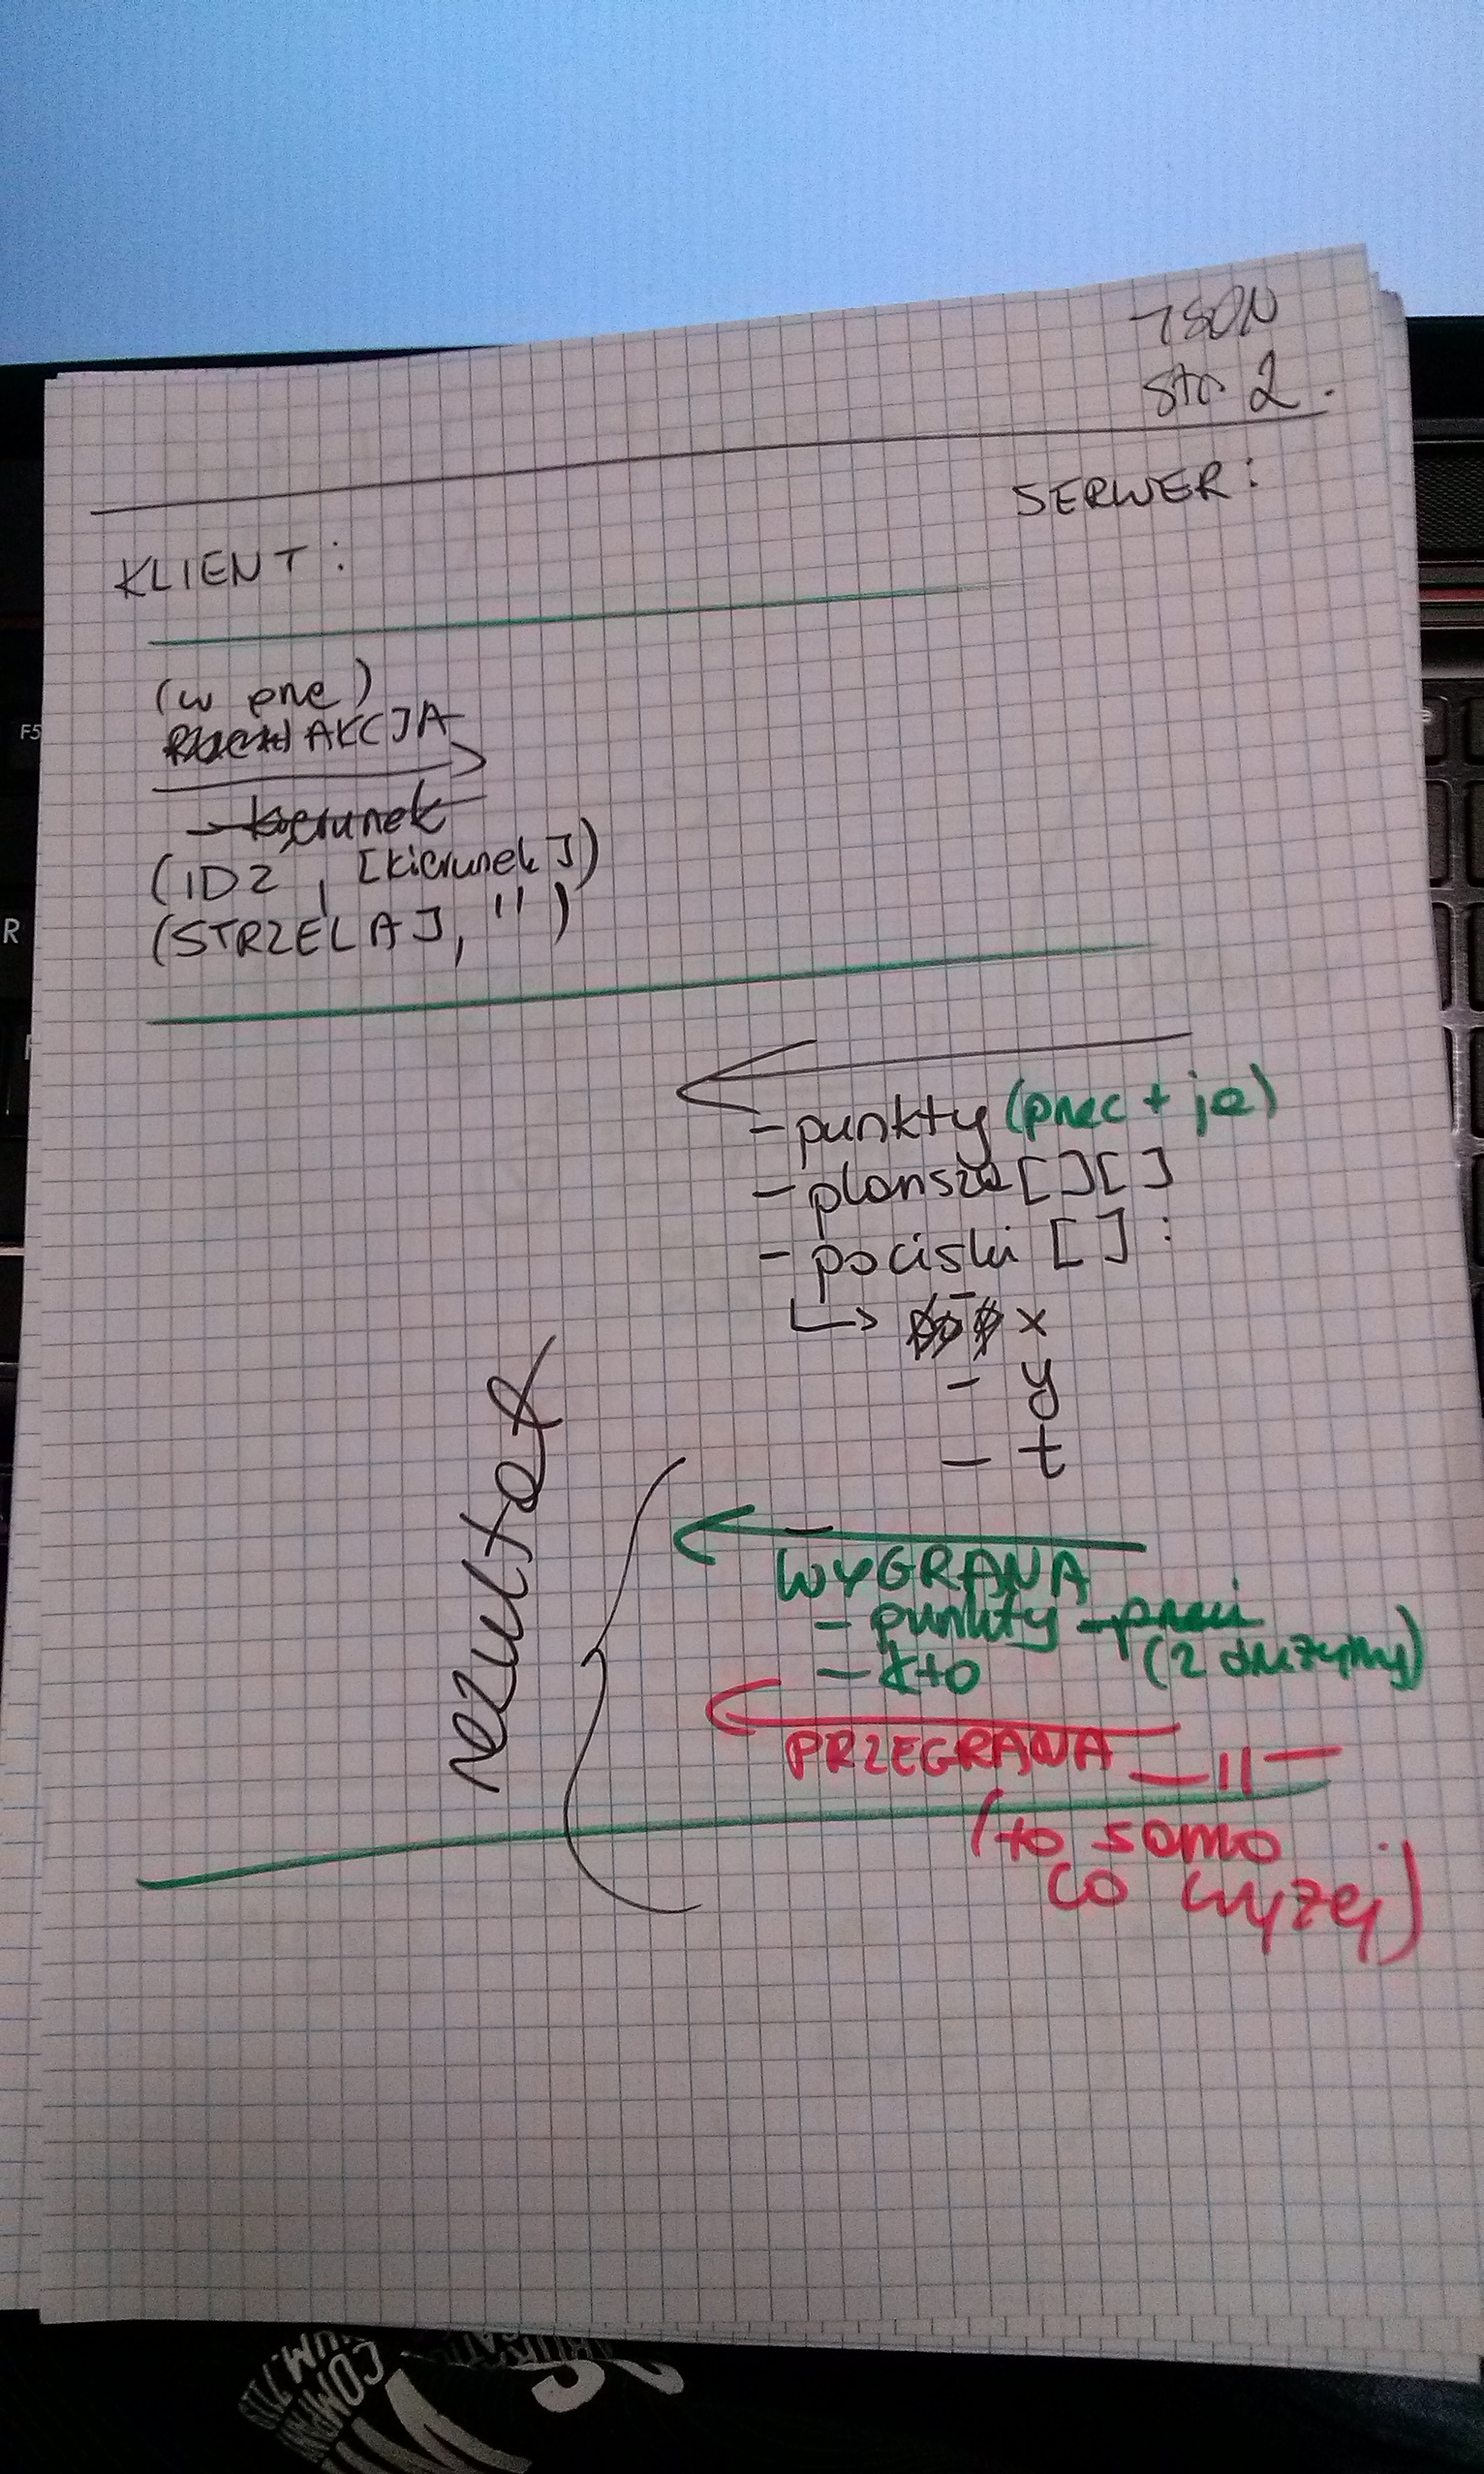 JSON
str. 2.
SERWER:
KLIENT:
(w grze)
AKCJA
kierunek
(IDZ, [kierunek])
(STRZELAJ, '')
- punkty (prec + ja)
- plansza [][]
- pociski []:
- x
- y
- t
rezultat
WYGRANA
- punkty
- kto (2 drużyny)
PRZEGRANA —11—
(to samo
co wyżej)
F5
R
COMP